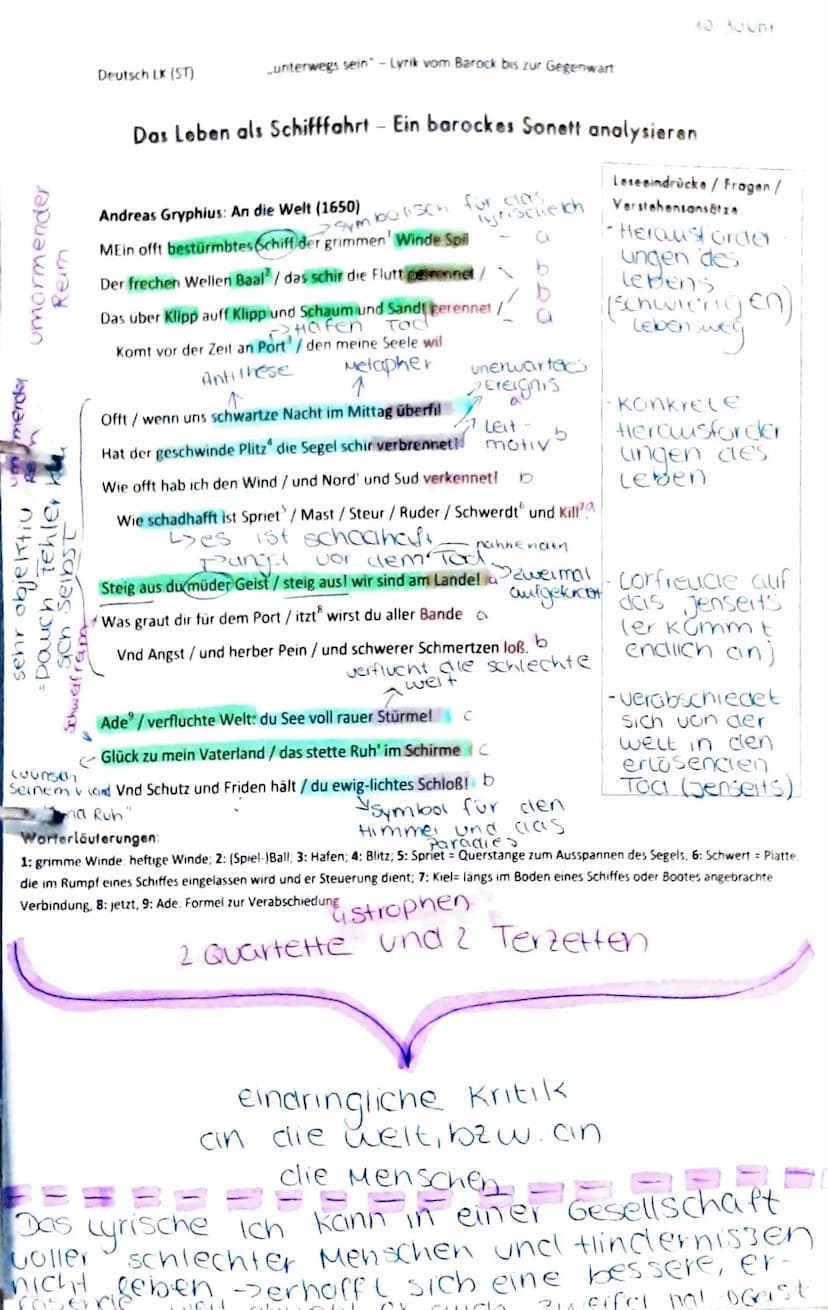 10 Juni
Deutsch LK (ST)
„unterwegs sein" – Lyrik vom Barock bis zur Gegenwart
Das Leben als Schifffahrt – Ein barockes Sonett analysieren
umarmender
Reim
Andreas Gryphius: An die Welt (1650)
symbolisch für das
lyrische ich
MEin offt bestürmbtes Schiff der grimmen¹ Winde Spil
a
Der frechen Wellen Baal² / das schir die Flutt getrennet /
b
Das über Klipp auff Klipp und Schaum und Sandt gerennet /
b
-> Hafen Tod
a
Komt vor der Zeit an Port³ / den meine Seele wil
Antithese
Metapher
unerwartetes
Ereignis
a
Offt / wenn uns schwartze Nacht im Mittag überfil
Hat der geschwinde Plitz⁴ die Segel schir verbrennet!
Leit-
motiv
b
Wie offt hab ich den Wind / und Nord' und Sud verkennet!
b
Wie schadhafft ist Spriet⁵ / Mast / Steur / Ruder / Schwerdt⁶ und Kill⁷
a
-> es ist schadhaft
Angst vor dem Tod
Steig aus du müder Geist / steig aus! wir sind am Lande!
a
zweimal
Was graut dir für dem Port / itzt⁸ wirst du aller Bande
a
Vnd Angst / und herber Pein / und schwerer Schmertzen loß.
b
verflucht die schlechte
Welt
Ade⁹ / verfluchte Welt: du See voll rauer Stürme!
c
Glück zu mein Vaterland / das stette Ruh' im Schirme
c
Vnd Schutz und Friden hält / du ewig-lichtes Schloß!
b
Symbol für den
Himmel und das
Paradies
sehr objektiv
auch Fehler
sich selbst
Schweifreim
Wunsch
seinem
Ruh"
Leseeindrücke / Fragen /
Verstehensansätze
- Herausforder
ungen des
Lebens
(schwierigen)
Lebensweg
- Konkrete
Herausforder
ungen des
Leben
- Vorfreude auf
das Jenseits
(er kommt
endlich an)
- verabschiedet
sich von der
Welt in den
erlösenden
Tod (Jenseits)
Worterläuterungen:
1: grimme Winde: heftige Winde; 2: (Spiel-)Ball; 3: Hafen; 4: Blitz; 5: Spriet = Querstange zum Ausspannen des Segels, 6: Schwert = Platte,
die im Rumpf eines Schiffes eingelassen wird und er Steuerung dient; 7: Kiel= längs im Boden eines Schiffes oder Bootes angebrachte
Verbindung, 8: jetzt, 9: Ade. Formel zur Verabschiedung
4 strophen
2 Quartette und 2 Terzetten
eindringliche Kritik
an die Welt, bzw. an
die Menschen
Das lyrische Ich kann in einer Gesellschaft
voller schlechter Menschen und Hindernissen
nicht leben -> erhofft sich eine bessere, er-